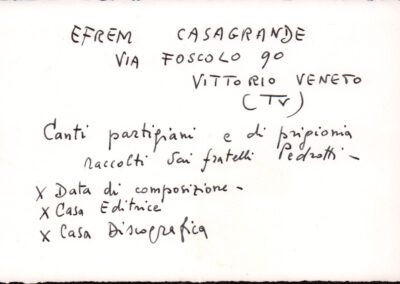 EFREM CASAGRANDE
VIA FOSCOLO 90
VITTORIO VENETO
(TV)
Canti partigiani e di prigionia
raccolti dai fratelli Pedrotti -
X Data di composizione -
X Casa Editrice
X Casa Discografica